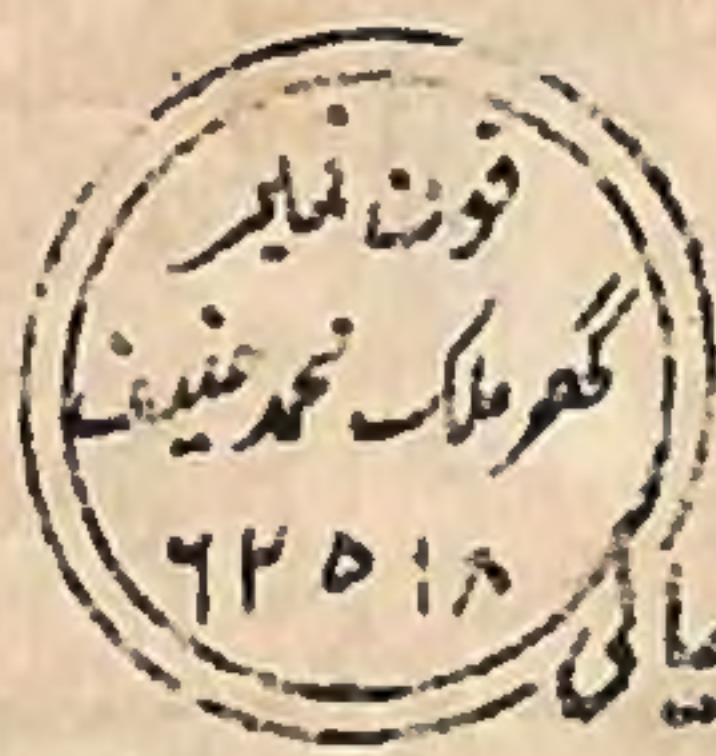 فون نمبر
گھر ملک محمد حنیف
۶۲۵۱۸